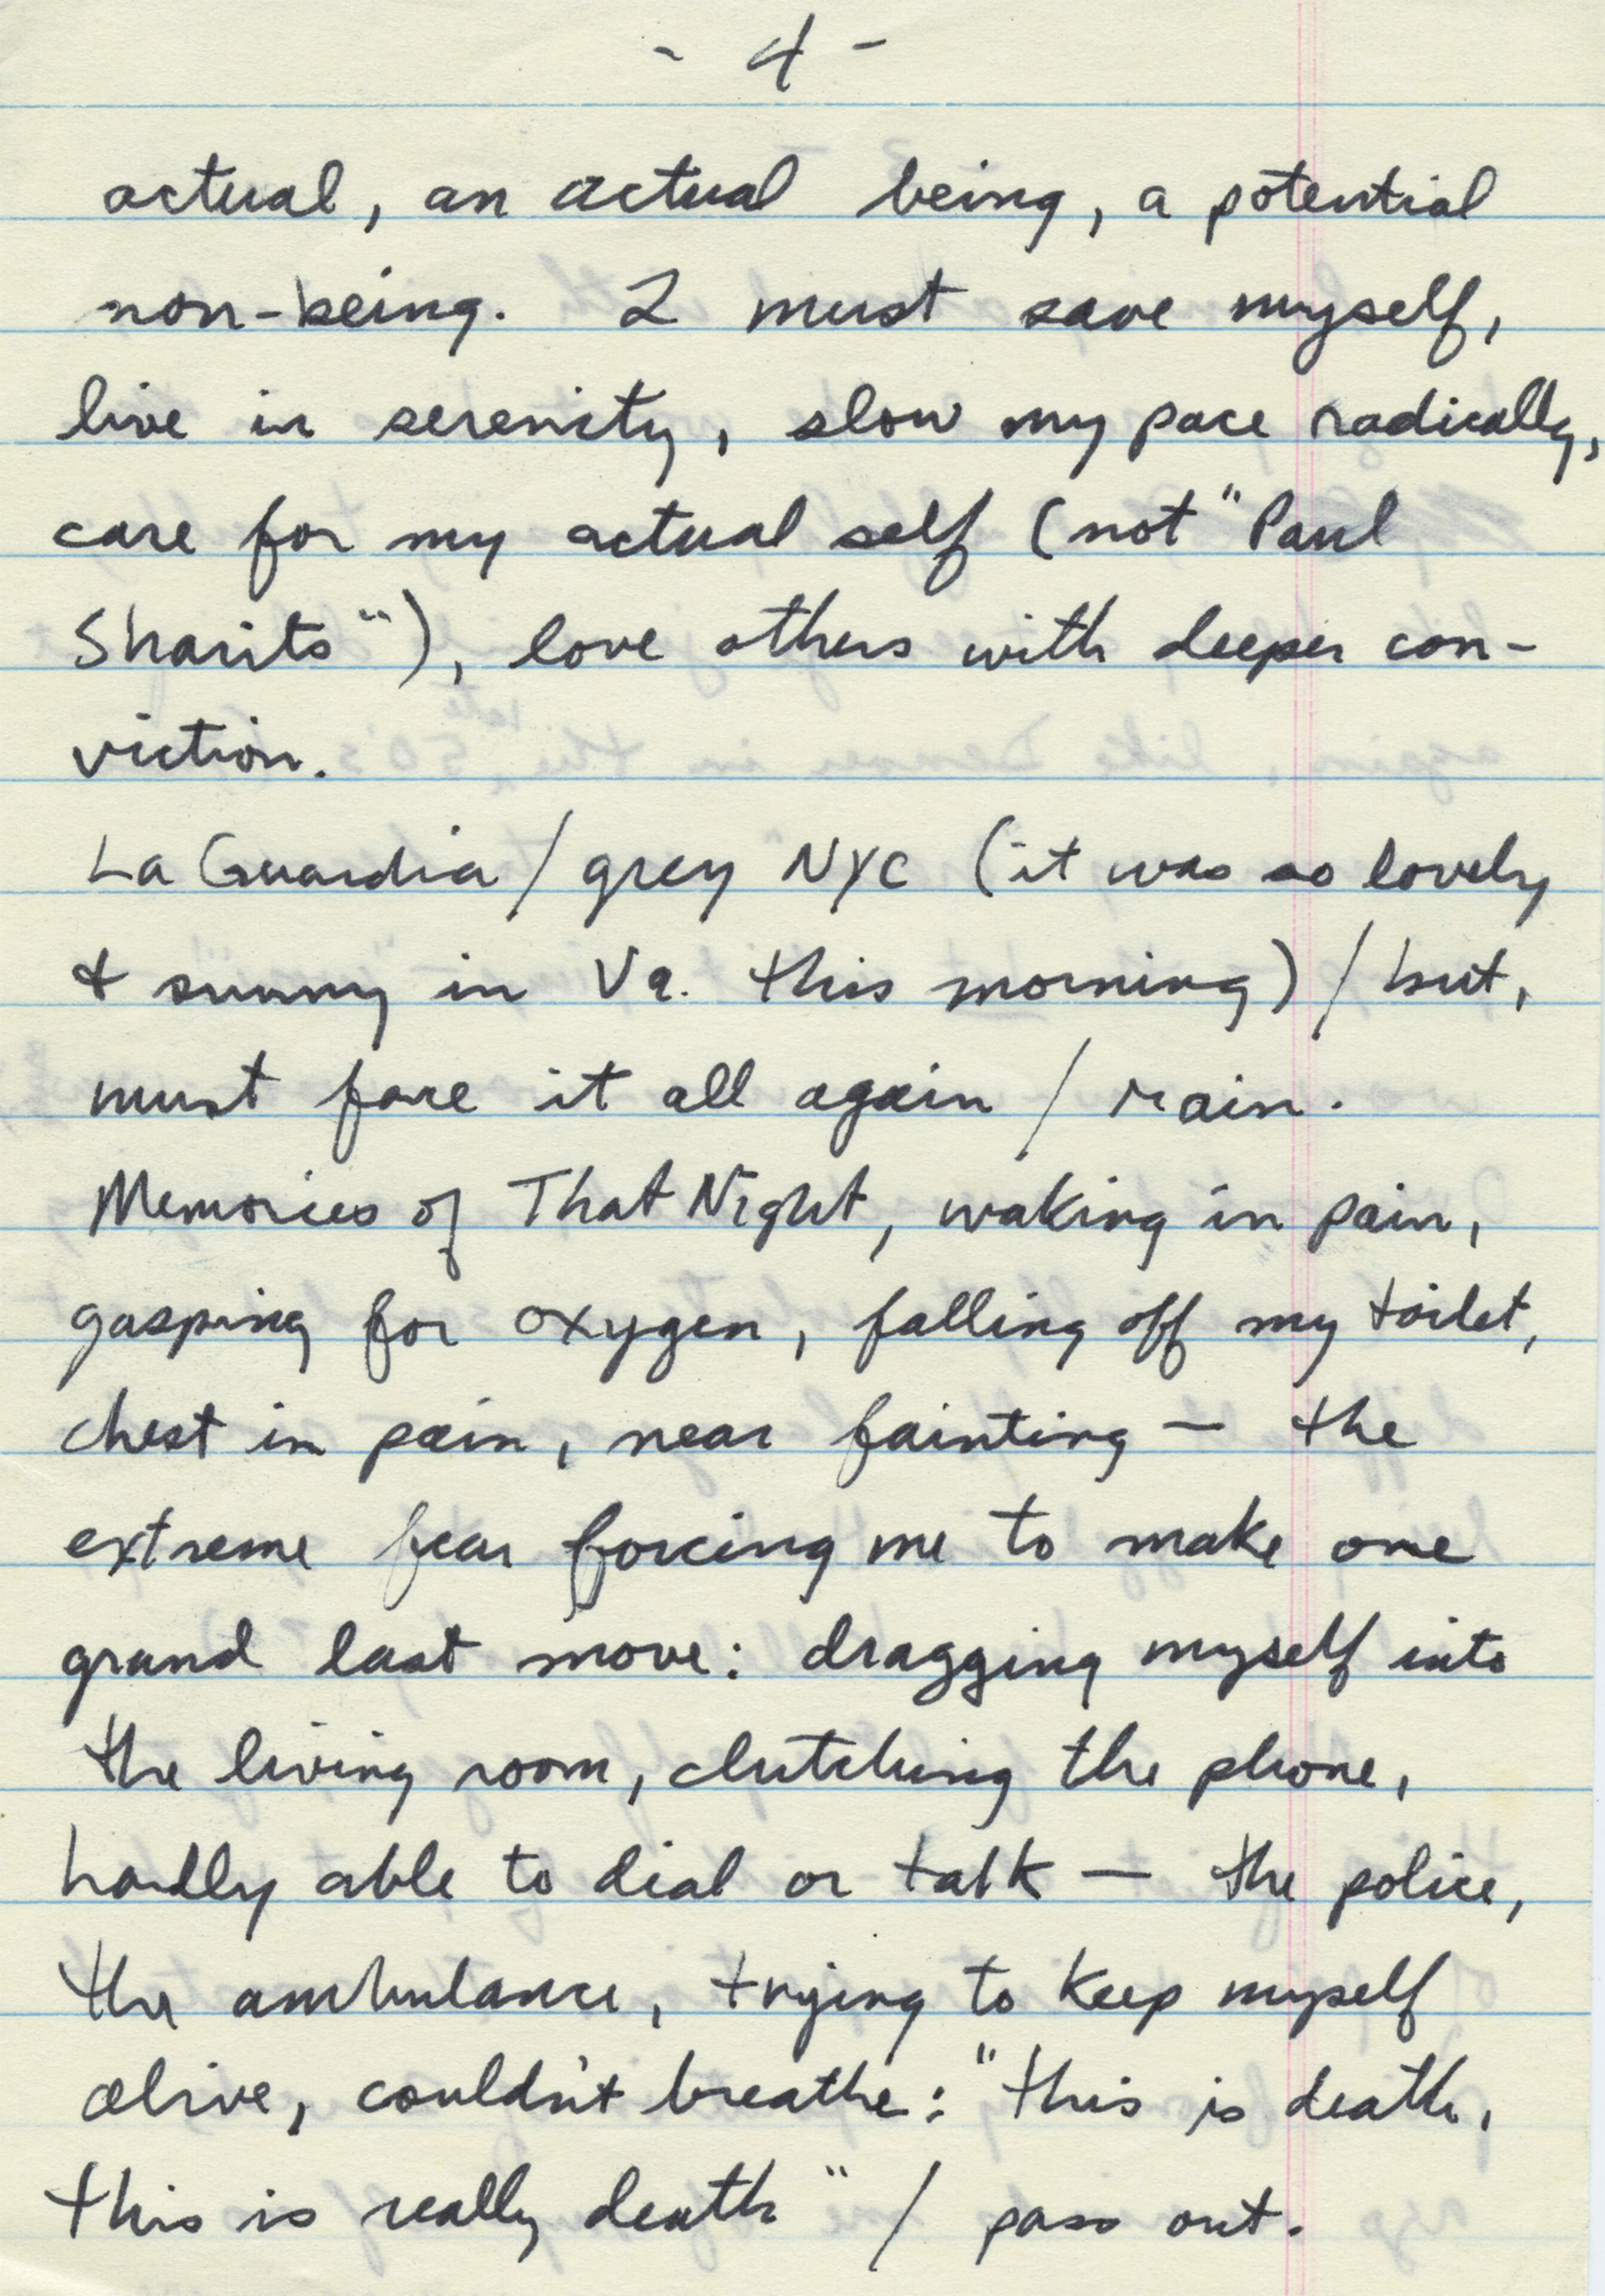 - 4 -
actual, an actual being, a potential
non-being. I must save myself,
live in serenity, slow my pace radically,
care for my actual self (not "Paul
Sharits"), love others with deeper con-
viction.
La Guardia / grey NYC (it was so lovely
& sunny in Va. this morning) / but,
must face it all again / rain.
Memories of That Night, waking in pain,
gasping for oxygen, falling off my toilet,
chest in pain, near fainting — the
extreme fear forcing me to make one
grand last move: dragging myself into
the living room, clutching the phone,
hardly able to dial or talk — the police,
the ambulance, trying to keep myself
alive, couldn't breathe: "this is death,
this is really death" / pass out.